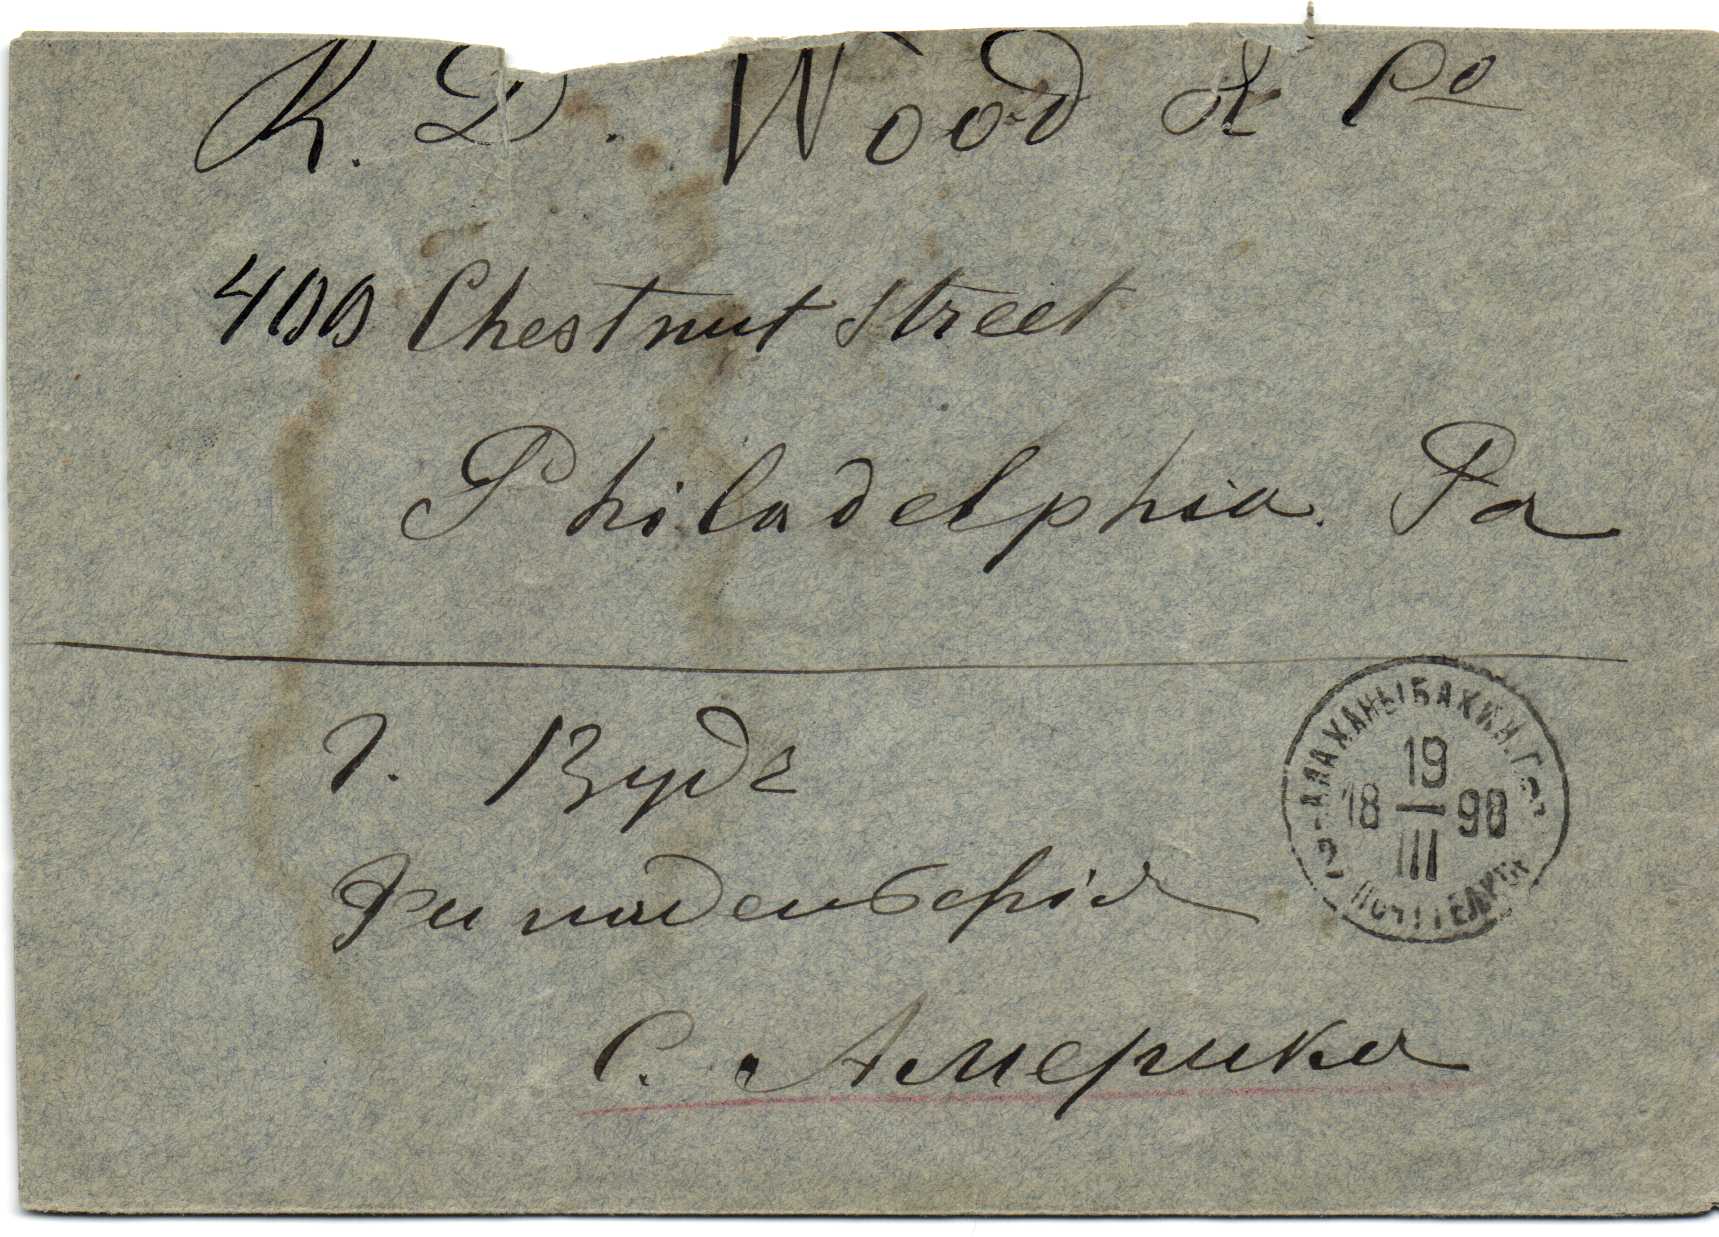 R. D. Wood & Co
400 Chestnut Street
Philadelphia. Pa
г. Вудъ
Филадельфія
С. Америка
БАЛАХАНЫ БАКИН. Г.
19
18 98
III